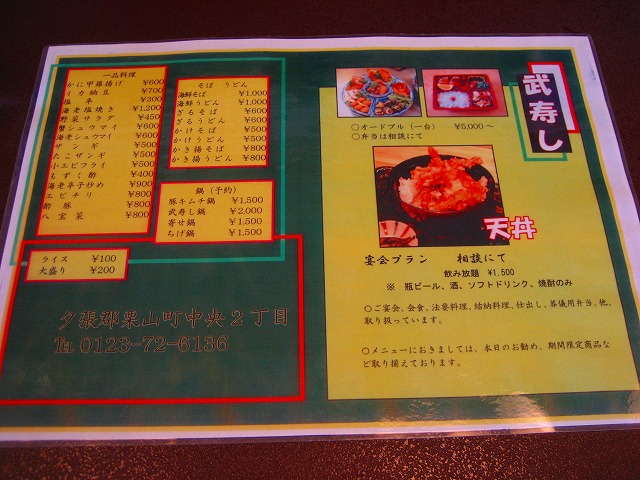 一品料理
かに甲羅揚げ ¥600
イカ納豆 ¥700
塩辛 ¥300
海老塩焼き ¥1,200
野菜サラダ ¥450
蟹シュウマイ ¥600
海老シュウマイ ¥600
ザンギ ¥500
たこザンギ ¥500
小エビフライ ¥500
もずく酢 ¥400
海老辛子炒め ¥900
エビチリ ¥800
酢豚 ¥800
八宝菜 ¥800
そば うどん
海鮮そば ¥1,000
海鮮うどん ¥1,000
ざるそば ¥600
ざるうどん ¥600
かけそば ¥500
かけうどん ¥500
かき揚そば ¥800
かき揚うどん ¥800
鍋(予約)
豚キムチ鍋 ¥1,500
武寿し鍋 ¥2,000
寄せ鍋 ¥1,500
ちげ鍋 ¥1,500
ライス ¥100
大盛り ¥200
夕張郡栗山町中央2丁目
℡ 0123-72-6136
武寿し
○オードブル(一台) ¥5,000~
○弁当は相談にて
天丼
宴会プラン 相談にて
飲み放題 ¥1,500
※ 瓶ビール、酒、ソフトドリンク、焼酎のみ
○ご宴会、会食、法要料理、結納料理、仕出し、葬儀用弁当、他、
取り扱っています。
○メニューにおきましては、本日のお勧め、期間限定商品な
ど取り揃えております。